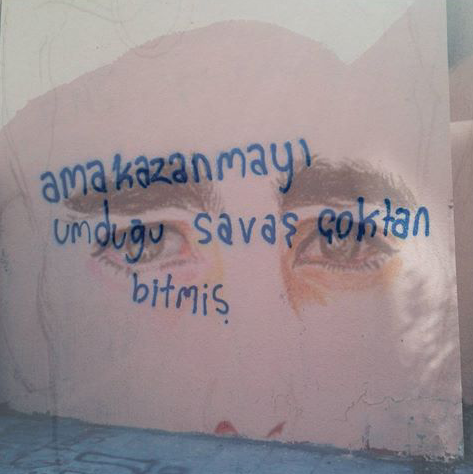 ama kazanmayı
umduğu savaş çoktan
bitmiş